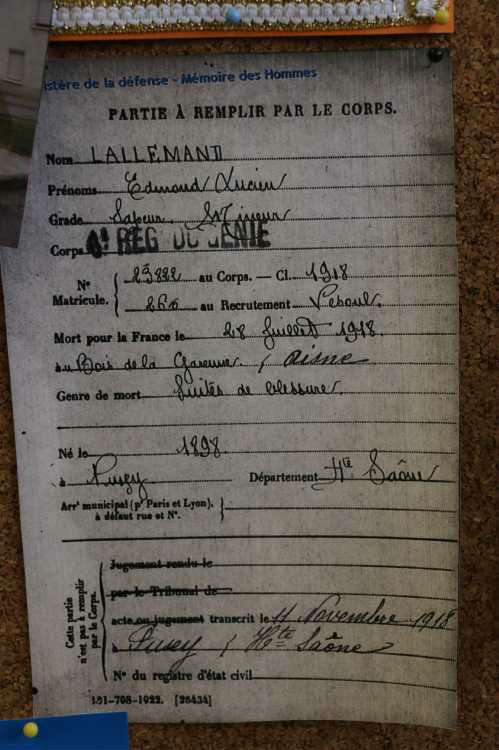 istère de la défense - Mémoire des Hommes
PARTIE À REMPLIR PAR LE CORPS.
Nom LALLEMAND
Prénoms Edmond Lucien
Grade Sapeur Mineur
Corps RÉG DU GÉNIE
Nº Matricule. { 23822 au Corps. — Cl. 1918
260 au Recrutement Vesoul.
Mort pour la France le 28 Juillet 1918.
au Bois de la Garenne, Aisne
Genre de mort Suites de blessure.
Né le 1898.
à Pusey Département Hte Saône
Arrt municipal (pr Paris et Lyon), à défaut rue et Nº. }
Cette partie n'est pas à remplir par le Corps.
Jugement rendu le
par le Tribunal de
acte ou jugement transcrit le 11 Novembre 1918
à Pusey, Hte Saône
Nº du registre d'état civil
-708-1922. [26434]